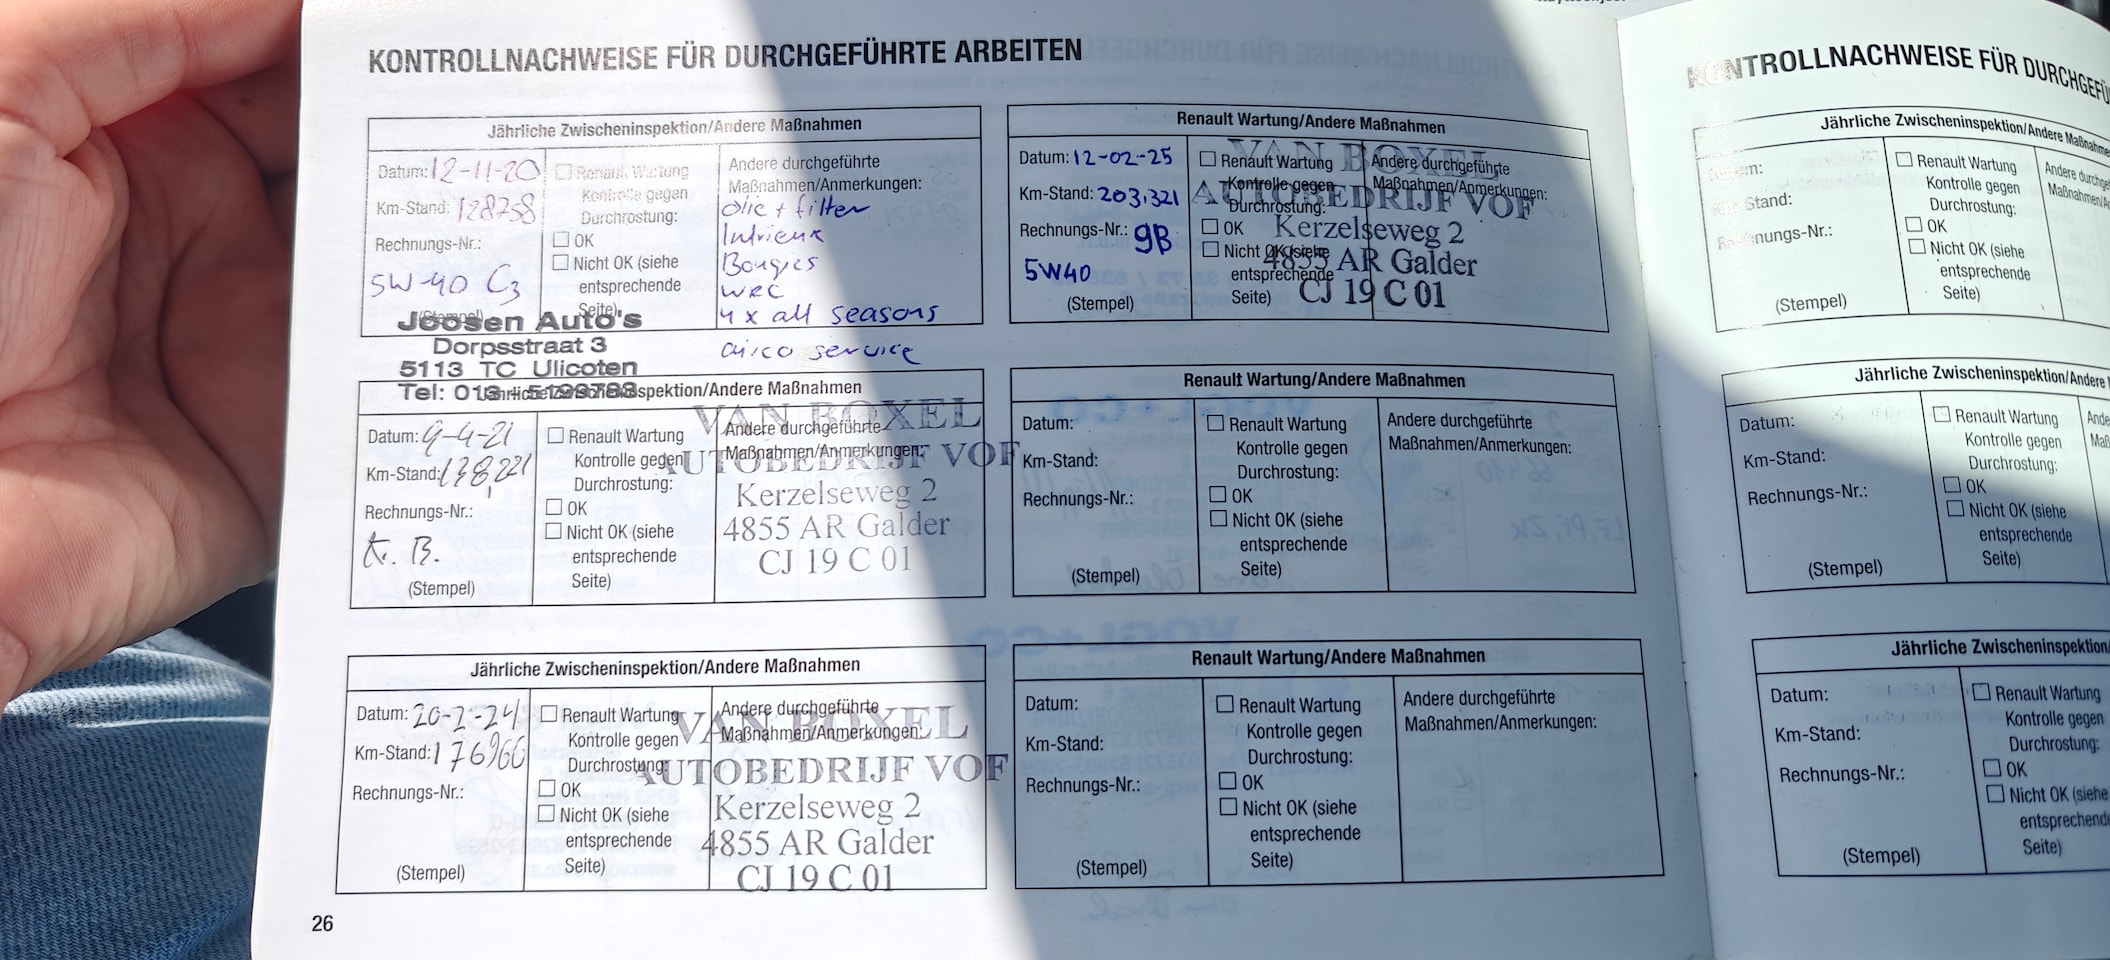 KONTROLLNACHWEISE FÜR DURCHGEFÜHRTE ARBEITEN
Jährliche Zwischeninspektion/Andere Maßnahmen
Datum: 12-11-20
Km-Stand: 128758
Rechnungs-Nr.:
5W-40 C3
(Stempel)
Renault Wartung
Kontrolle gegen
Durchrostung:
OK
Nicht OK (siehe
entsprechende
Seite)
Andere durchgeführte
Maßnahmen/Anmerkungen:
olie + filter
Intrieux
Bougies
WRC
4 x all seasons
airco service
Joosen Auto's
Dorpsstraat 3
5113 TC Ulicoten
Tel: 013 - 5199783
Jährliche Zwischeninspektion/Andere Maßnahmen
Datum: 9-4-21
Km-Stand: 138,221
Rechnungs-Nr.:
B.
(Stempel)
Renault Wartung
Kontrolle gegen
Durchrostung:
OK
Nicht OK (siehe
entsprechende
Seite)
Andere durchgeführte
Maßnahmen/Anmerkungen:
VAN BOXEL
AUTOBEDRIJF VOF
Kerzelseweg 2
4855 AR Galder
CJ 19 C 01
Jährliche Zwischeninspektion/Andere Maßnahmen
Datum: 20-2-24
Km-Stand: 176966
Rechnungs-Nr.:
(Stempel)
Renault Wartung
Kontrolle gegen
Durchrostung:
OK
Nicht OK (siehe
entsprechende
Seite)
Andere durchgeführte
Maßnahmen/Anmerkungen:
VAN BOXEL
AUTOBEDRIJF VOF
Kerzelseweg 2
4855 AR Galder
CJ 19 C 01
26
Renault Wartung/Andere Maßnahmen
Datum: 12-02-25
Km-Stand: 203.321
Rechnungs-Nr.: 9B
5W40
(Stempel)
Renault Wartung
Kontrolle gegen
Durchrostung:
OK
Nicht OK (siehe
entsprechende
Seite)
Andere durchgeführte
Maßnahmen/Anmerkungen:
VAN BOXEL
AUTOBEDRIJF VOF
Kerzelseweg 2
4855 AR Galder
CJ 19 C 01
Renault Wartung/Andere Maßnahmen
Datum:
Km-Stand:
Rechnungs-Nr.:
(Stempel)
Renault Wartung
Kontrolle gegen
Durchrostung:
OK
Nicht OK (siehe
entsprechende
Seite)
Andere durchgeführte
Maßnahmen/Anmerkungen:
Renault Wartung/Andere Maßnahmen
Datum:
Km-Stand:
Rechnungs-Nr.:
(Stempel)
Renault Wartung
Kontrolle gegen
Durchrostung:
OK
Nicht OK (siehe
entsprechende
Seite)
Andere durchgeführte
Maßnahmen/Anmerkungen:
KONTROLLNACHWEISE FÜR DURCHGEFÜ
Jährliche Zwischeninspektion/Andere Maßnahme
Datum:
Km-Stand:
Rechnungs-Nr.:
(Stempel)
Renault Wartung
Kontrolle gegen
Durchrostung:
OK
Nicht OK (siehe
entsprechende
Seite)
Andere durchge
Maßnahmen/A
Jährliche Zwischeninspektion/Andere
Datum:
Km-Stand:
Rechnungs-Nr.:
(Stempel)
Renault Wartung
Kontrolle gegen
Durchrostung:
OK
Nicht OK (siehe
entsprechende
Seite)
Ande
Maß
Jährliche Zwischeninspektion
Datum:
Km-Stand:
Rechnungs-Nr.:
(Stempel)
Renault Wartung
Kontrolle gegen
Durchrostung:
OK
Nicht OK (siehe
entsprechend
Seite)